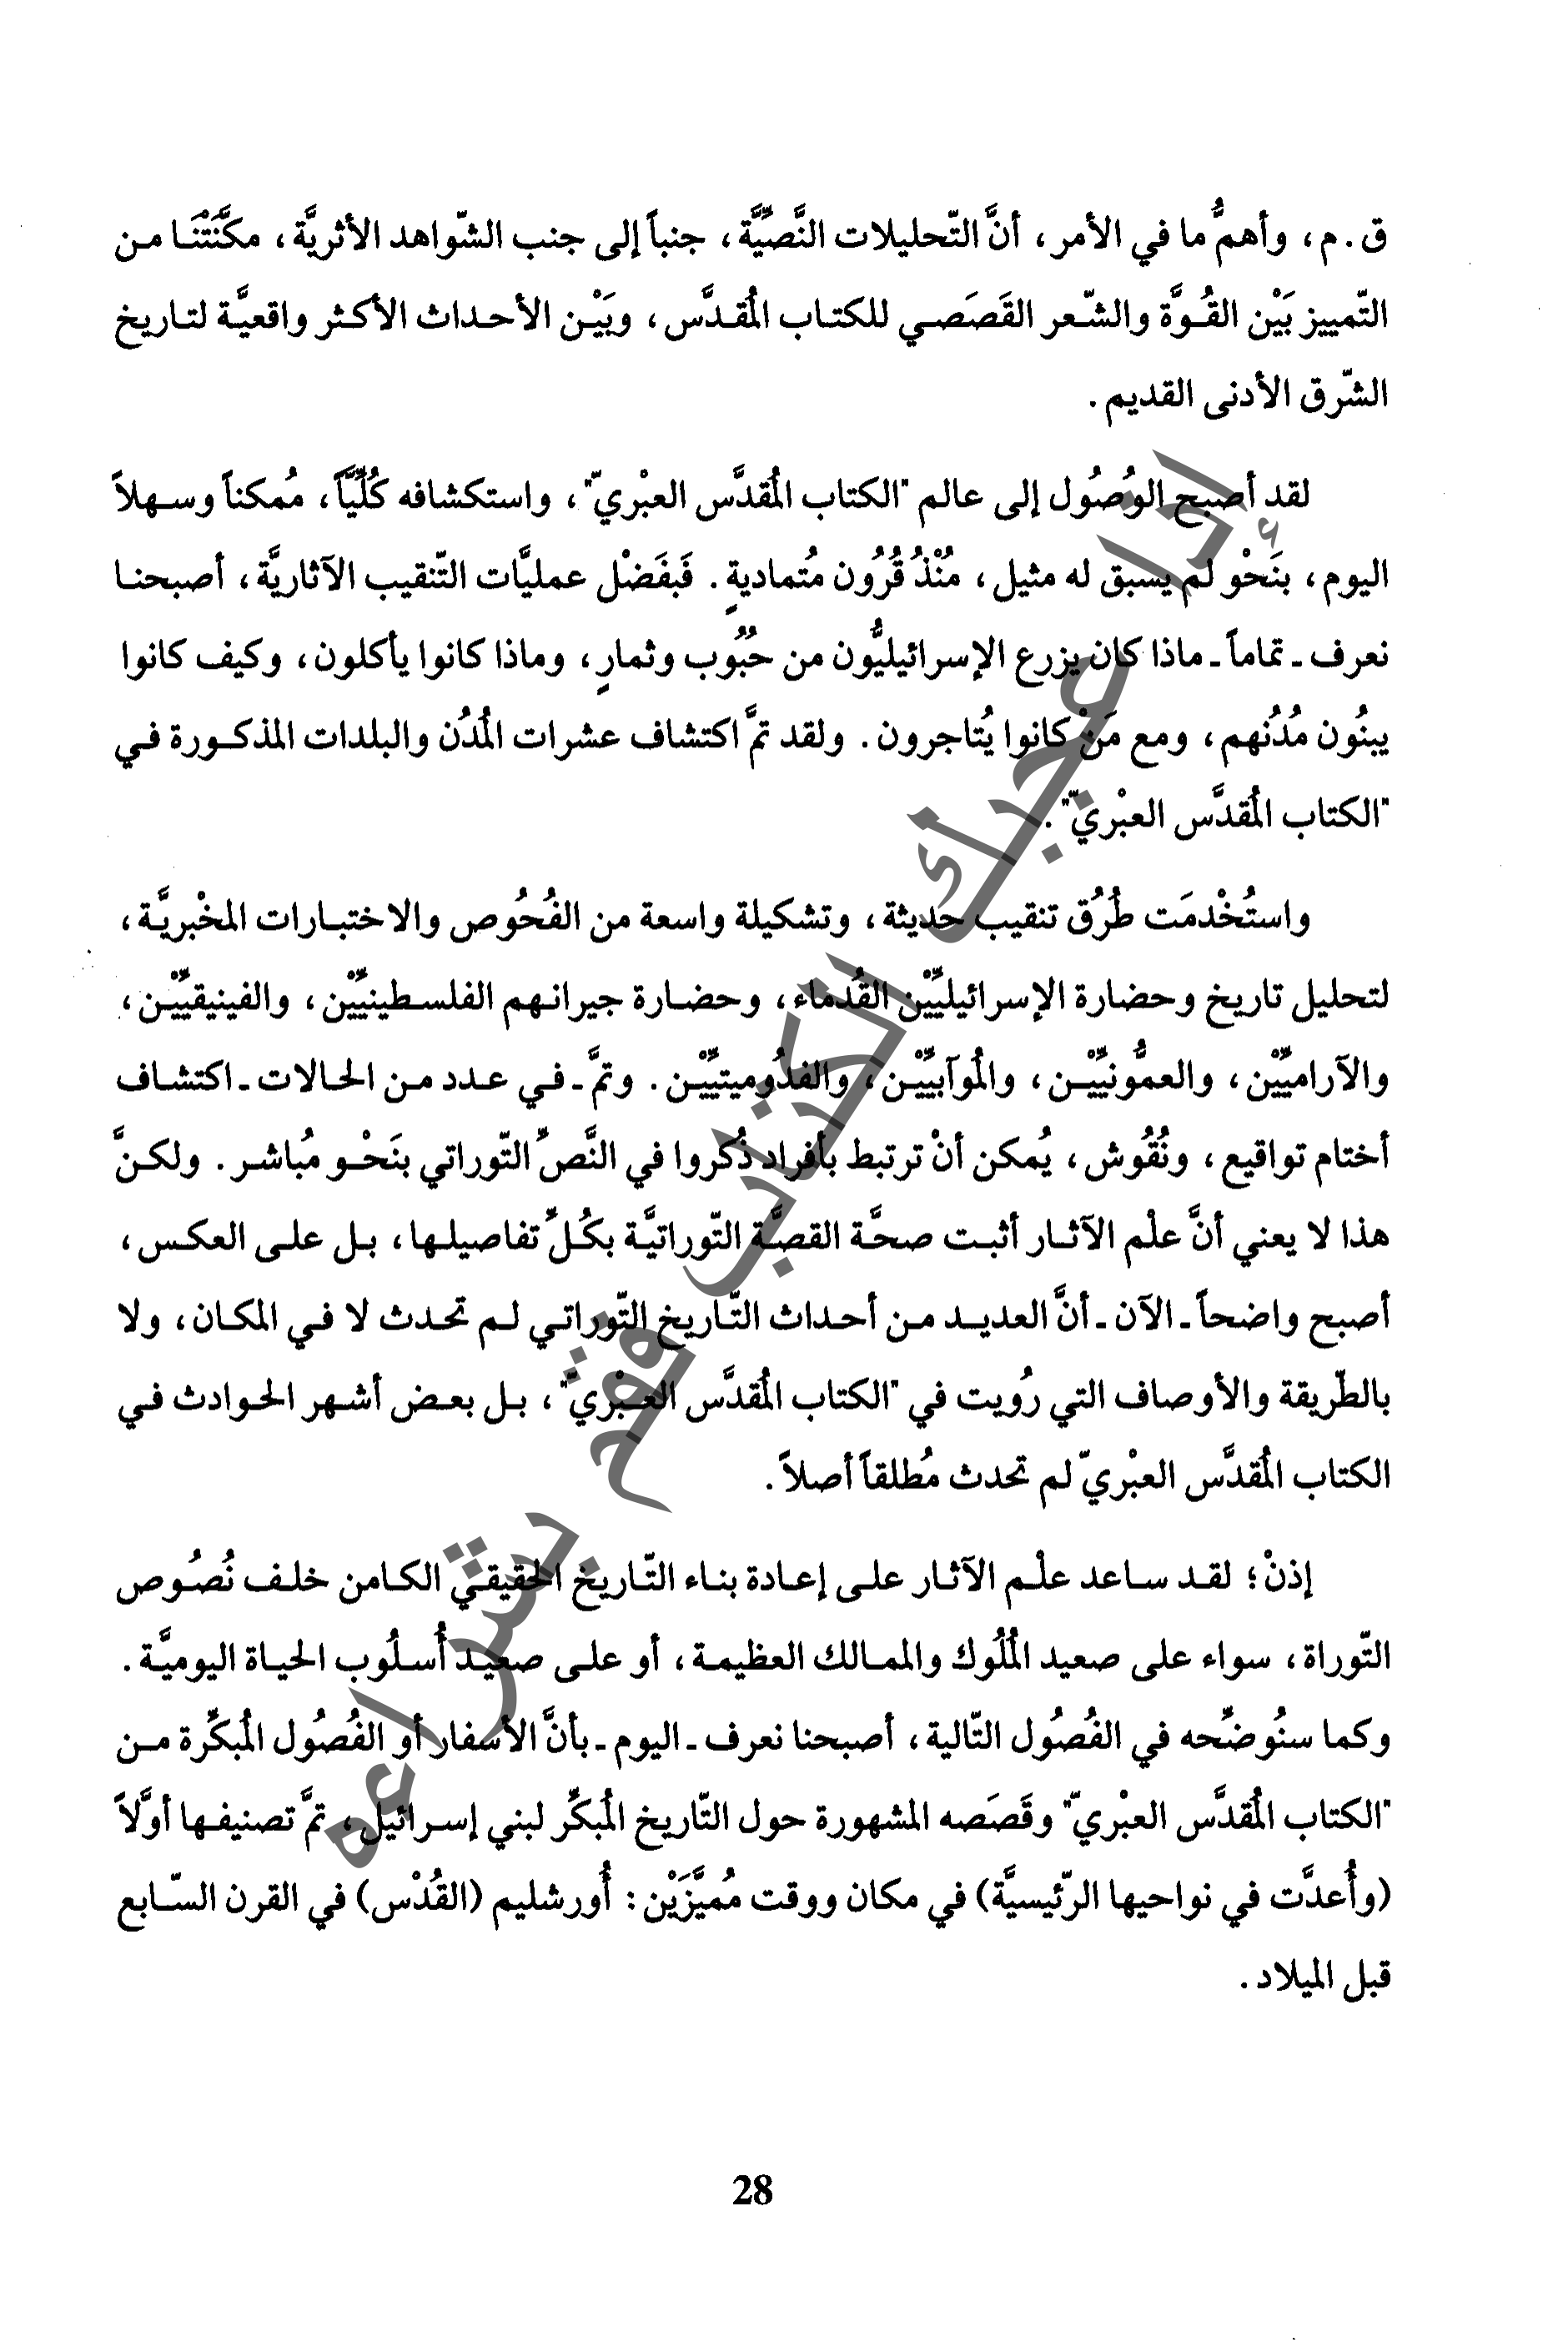 ق.م، وأهمُّ ما في الأمر، أنَّ التّحليلات النَّصِّيَّة، جنباً إلى جنب الشّواهد الأثريَّة، مكَّنَتْنَا من
التّمييز بَيْن القُوَّة والشّعر القَصَصي للكتاب المُقدَّس، وبَيْن الأحداث الأكثر واقعيَّة لتاريخ
الشّرق الأدنى القديم.
لقد أصبح الوُصُول إلى عالم "الكتاب المُقدَّس العبْريّ"، واستكشافه كُلِّيَّاً، مُمكناً وسهلاً
اليوم، بنَحْو لم يسبق له مثيل، مُنْذُ قُرُون مُتماديةٍ. فَبفَضْل عمليَّات التّنقيب الآثاريَّة، أصبحنا
نعرف ـ تماماً ـ ماذا كان يزرع الإسرائيليُّون من حُبُوب وثمارٍ، وماذا كانوا يأكلون، وكيف كانوا
يبنُون مُدُنهم، ومع مَنْ كانوا يُتاجرون. ولقد تمَّ اكتشاف عشرات المُدُن والبلدات المذكورة في
"الكتاب المُقدَّس العبْريّ".
واستُخْدمَت طُرُق تنقيب حديثة، وتشكيلة واسعة من الفُحُوص والاختبارات المخْبريَّة،
لتحليل تاريخ وحضارة الإسرائيليِّيْن القُدماء، وحضارة جيرانهم الفلسطينيِّيْن، والفينيقيِّيْن،
والآراميِّيْن، والعمُّونيِّيْن، والمُوآبيِّيْن، والفدُوميتيِّيْن. وتمَّ ـ في عدد من الحالات ـ اكتشاف
أختام تواقيع، ونُقُوش، يُمكن أنْ ترتبط بأفراد ذُكروا في النَّصِّ التّوراتي بنَحْو مُباشر. ولكنَّ
هذا لا يعني أنَّ علْم الآثار أثبت صحَّة القصَّة التّوراتيَّة بكُلِّ تفاصيلها، بل على العكس،
أصبح واضحاً ـ الآن ـ أنَّ العديد من أحداث التّاريخ التّوراتي لم تحدث لا في المكان، ولا
بالطّريقة والأوصاف التي رُويت في "الكتاب المُقدَّس العبْريّ"، بل بعض أشهر الحوادث في
الكتاب المُقدَّس العبْريّ لم تحدث مُطلقاً أصلاً.
إذنْ؛ لقد ساعد علْم الآثار على إعادة بناء التّاريخ الحقيقي الكامن خلف نُصُوص
التّوراة، سواء على صعيد المُلُوك والممالك العظيمة، أو على صعيد أُسلُوب الحياة اليوميَّة.
وكما سنُوضِّحه في الفُصُول التّالية، أصبحنا نعرف ـ اليوم ـ بأنَّ الأسفار أو الفُصُول المُبكِّرة من
"الكتاب المُقدَّس العبْريّ" وقَصَصه المشهورة حول التّاريخ المُبكِّر لبني إسرائيل، تمَّ تصنيفها أوَّلاً
(وأُعدَّت في نواحيها الرّئيسيَّة) في مكان ووقت مُميَّزَيْن: أُورشليم (القُدْس) في القرن السّابع
قبل الميلاد.
28
إذا أعجبك الكتاب فقم بشراءه